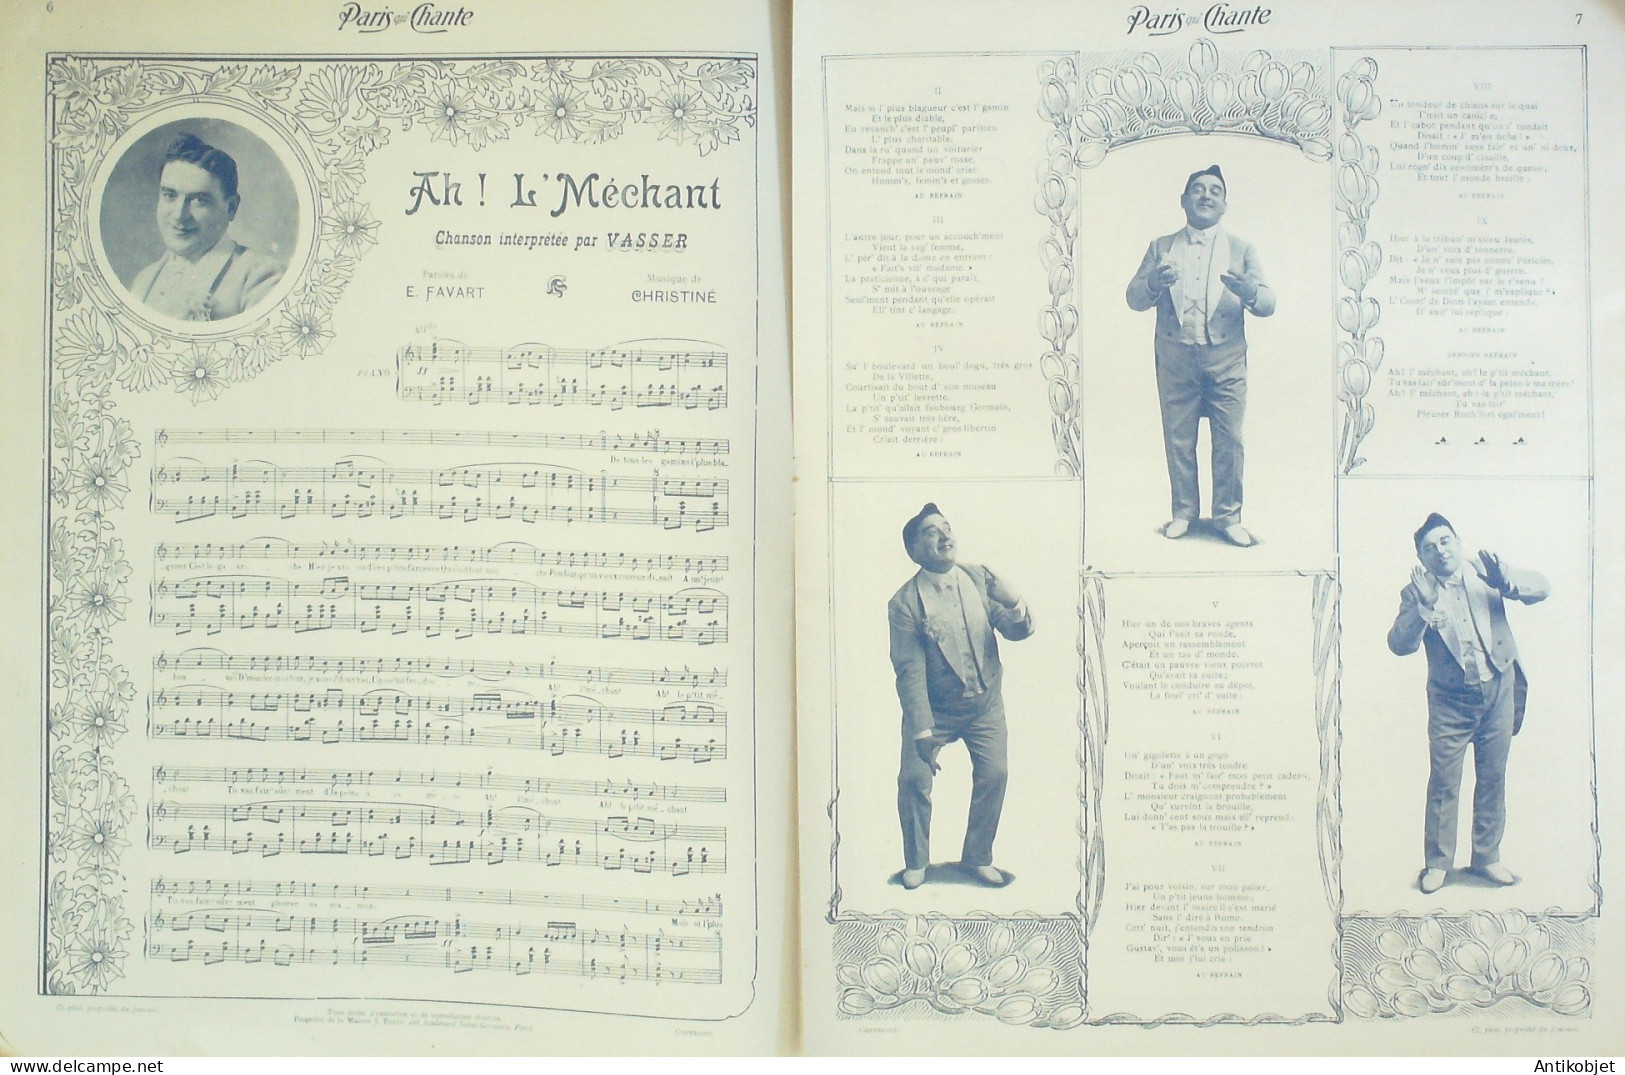 6
Paris qui Chante
Ah ! L'Méchant
Chanson interprétée par VASSER
Paroles de
E. FAVART
Musique de
CHRISTINÉ
PIANO
De tous les gamins l'plus bla-
Ah! l'mé-chant Ah! le p'tit mé-
chant Tu vas fair' sûr'ment d'la peine à ta mère Ah! l'mé-chant Ah! le p'tit mé-chant
Mais si l'plus
Cl. phot. propriété du journal.
Tous droits d'exécution et de reproduction réservés.
Copyright.
Paris qui Chante
7
II
Mais si l' plus blagueur c'est l' gamin
Et le plus diable,
En revanch' c'est l' peupl' parisien
L' plus charitable.
Dans la ru' quand un voiturier
Frappe un' pauv' rosse,
On entend tout le mond' crier
Homm's, femm's et gosses.
AU REFRAIN
III
L'autre jour, pour un accouch'ment
Vient la sag' femme,
L' pèr' dit à la dame en entrant :
« Fait's vit' madame. »
La praticienne, à c' qui paraît,
S' mit à l'ouvrage
Seul'ment pendant qu'elle opérait
Ell' tint c' langage.
AU REFRAIN
IV
Su' l' boulevard un boul' dogu, très gros
De la Villette,
Courtisait du bout d' son museau
Un p'tit' levrette.
La p'tit' qu'allait faubourg Germain,
S' sauvait très fière,
Et l' mond' voyant c' gros libertin
Criait derrière :
AU REFRAIN
V
Hier un de nos braves agents
Qui f'sait sa ronde,
Aperçoit un rassemblement
Et un tas d' monde.
C'était un pauvre vieux poivrot
Qu'avait sa cuite ;
Voulant le conduire au dépôt,
La foul' cri' d' suite :
AU REFRAIN
VI
Un' gigolette à un gogo
D'un' voix très tendre
Disait : « Faut m' fair' mon petit cadeau,
Tu dois m'comprendre ? »
L' monsieur craignant probablement
Qu' survînt la brouille,
Lui donn' cent sous mais ell' reprend :
« T'as pas la trouille ? »
AU REFRAIN
VII
J'ai pour voisin, sur mon palier,
Un p'tit jeune homme ;
Hier devant l' maire il s'est marié
Sans l' dire à Rome.
Cett' nuit, j'entendis son tendron
Dir' : « J' vous en prie
Gustav', vous êt's un polisson ! »
Et moi j'lui crie :
AU REFRAIN
VIII
Un tondeur de chiens sur le quai
T'nait un caniche,
Et l' cabot pendant qu'on l' tondait
Disait : « J' m'en fiche ! »
Quand l'homm' sans fair' ni un' ni deux,
D'un coup d' cisaille,
Lui rogn' dix centimètr's de queue ;
Et tout l' monde braille :
AU REFRAIN
IX
Hier à la tribun' ni Jaurès,
D'un' voix d' tonnerre,
Dit : « Je n' suis pas comm' Périclès,
Je n' veux plus d' guerre.
Mais j'veux l'impôt sur le r'venu !
M' sembl' que j' m'explique ? »
L' Comt' de Dion l'ayant entendu,
D' suit' lui réplique :
DERNIER REFRAIN
Ah! l' méchant, ah! le p'tit méchant,
Tu vas fair' sûr'ment d' la peine à ma mère!
Ah! l' méchant, ah! le p'tit méchant,
Tu vas fair'
Pleurer Roch'fort égal'ment!
Copyright.
Cl. phot. propriété du journal.
Antikobjet